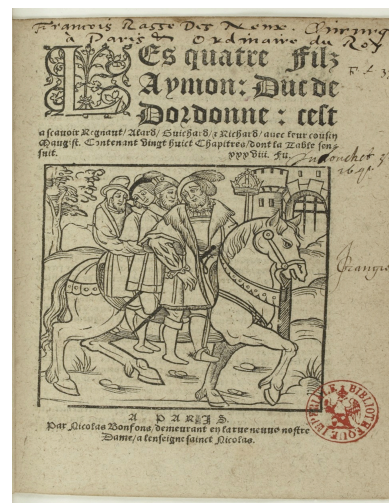 Francois Rasse Des Neux. Chirurg
à Paris & Ordinaire du Roy
LEs quatre Filz
Aymon: Duc de
Dordonne: cest
ascauoir Regnaut/ Alard/ Guichard/ & Richard/ auec leur cousin
Maugist. Contenant vingt huict Chapitres/ dont la Table sen
suit.
A PARIS.
Par Nicolas Bonfons, demeurant en la rue neuue nostre
Dame/ a lenseigne sainct Nicolas.
BIBLIOTHEQUE IMPERIALE